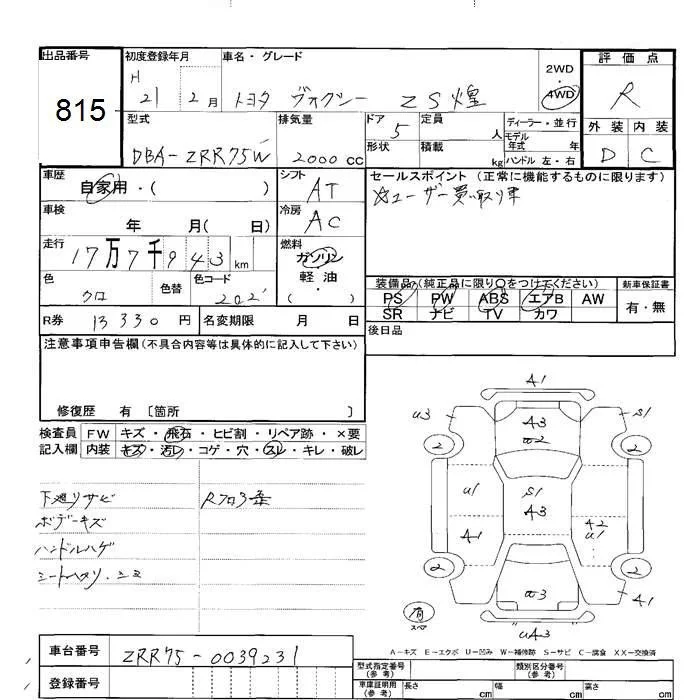 出品番号
815
初度登録年月
H 21 年 2 月
車名・グレード
トヨタ ヴォクシー ZS煌
2WD
・
4WD
評価点
R
型式
DBA-ZRR75W
排気量
2000 CC
ドア
5
形状
定員
人
積載
kg
ディーラー・並行
モデル
年式 年
ハンドル 左・右
外装
D
内装
C
車歴
自家用・( )
シフト
AT
セールスポイント (正常に機能するものに限ります)
☆ユーザー買い取り車
車検
年 月( 日)
冷房
AC
走行
17万7千943 km
燃料
ガソリン
軽油
・
( )
色
クロ
色替
色コード
202
装備品(純正品に限り〇をつけてください)
PS PW ABS エアB AW
SR ナビ TV カワ
新車保証書
有・無
R券 13330 円
名変期限 月 日
後日品
注意事項申告欄(不具合内容等は具体的に記入して下さい)
修復歴 有 〔箇所 〕
検査員
記入欄
FW キズ・飛石・ヒビ割・リペア跡・×要
内装 キズ・汚レ・コゲ・穴・スレ・キレ・破レ
下廻りサビ
ボデーキズ
ハンドルハゲ
A1
U3
S1
A3
2
2
U1
S1
A3
A1
A2
U1
2
2
A1
有
スペア
UA3
A-キズ E-エクボ U-凹み W-補修跡 S-サビ C-腐食 XX-交換済
車台番号
ZRR75-0039231
登録番号
型式指定番号
(参考)
類別区分番号
(参考)
車庫証明用
(参考)
長さ cm
幅 cm
高さ cm